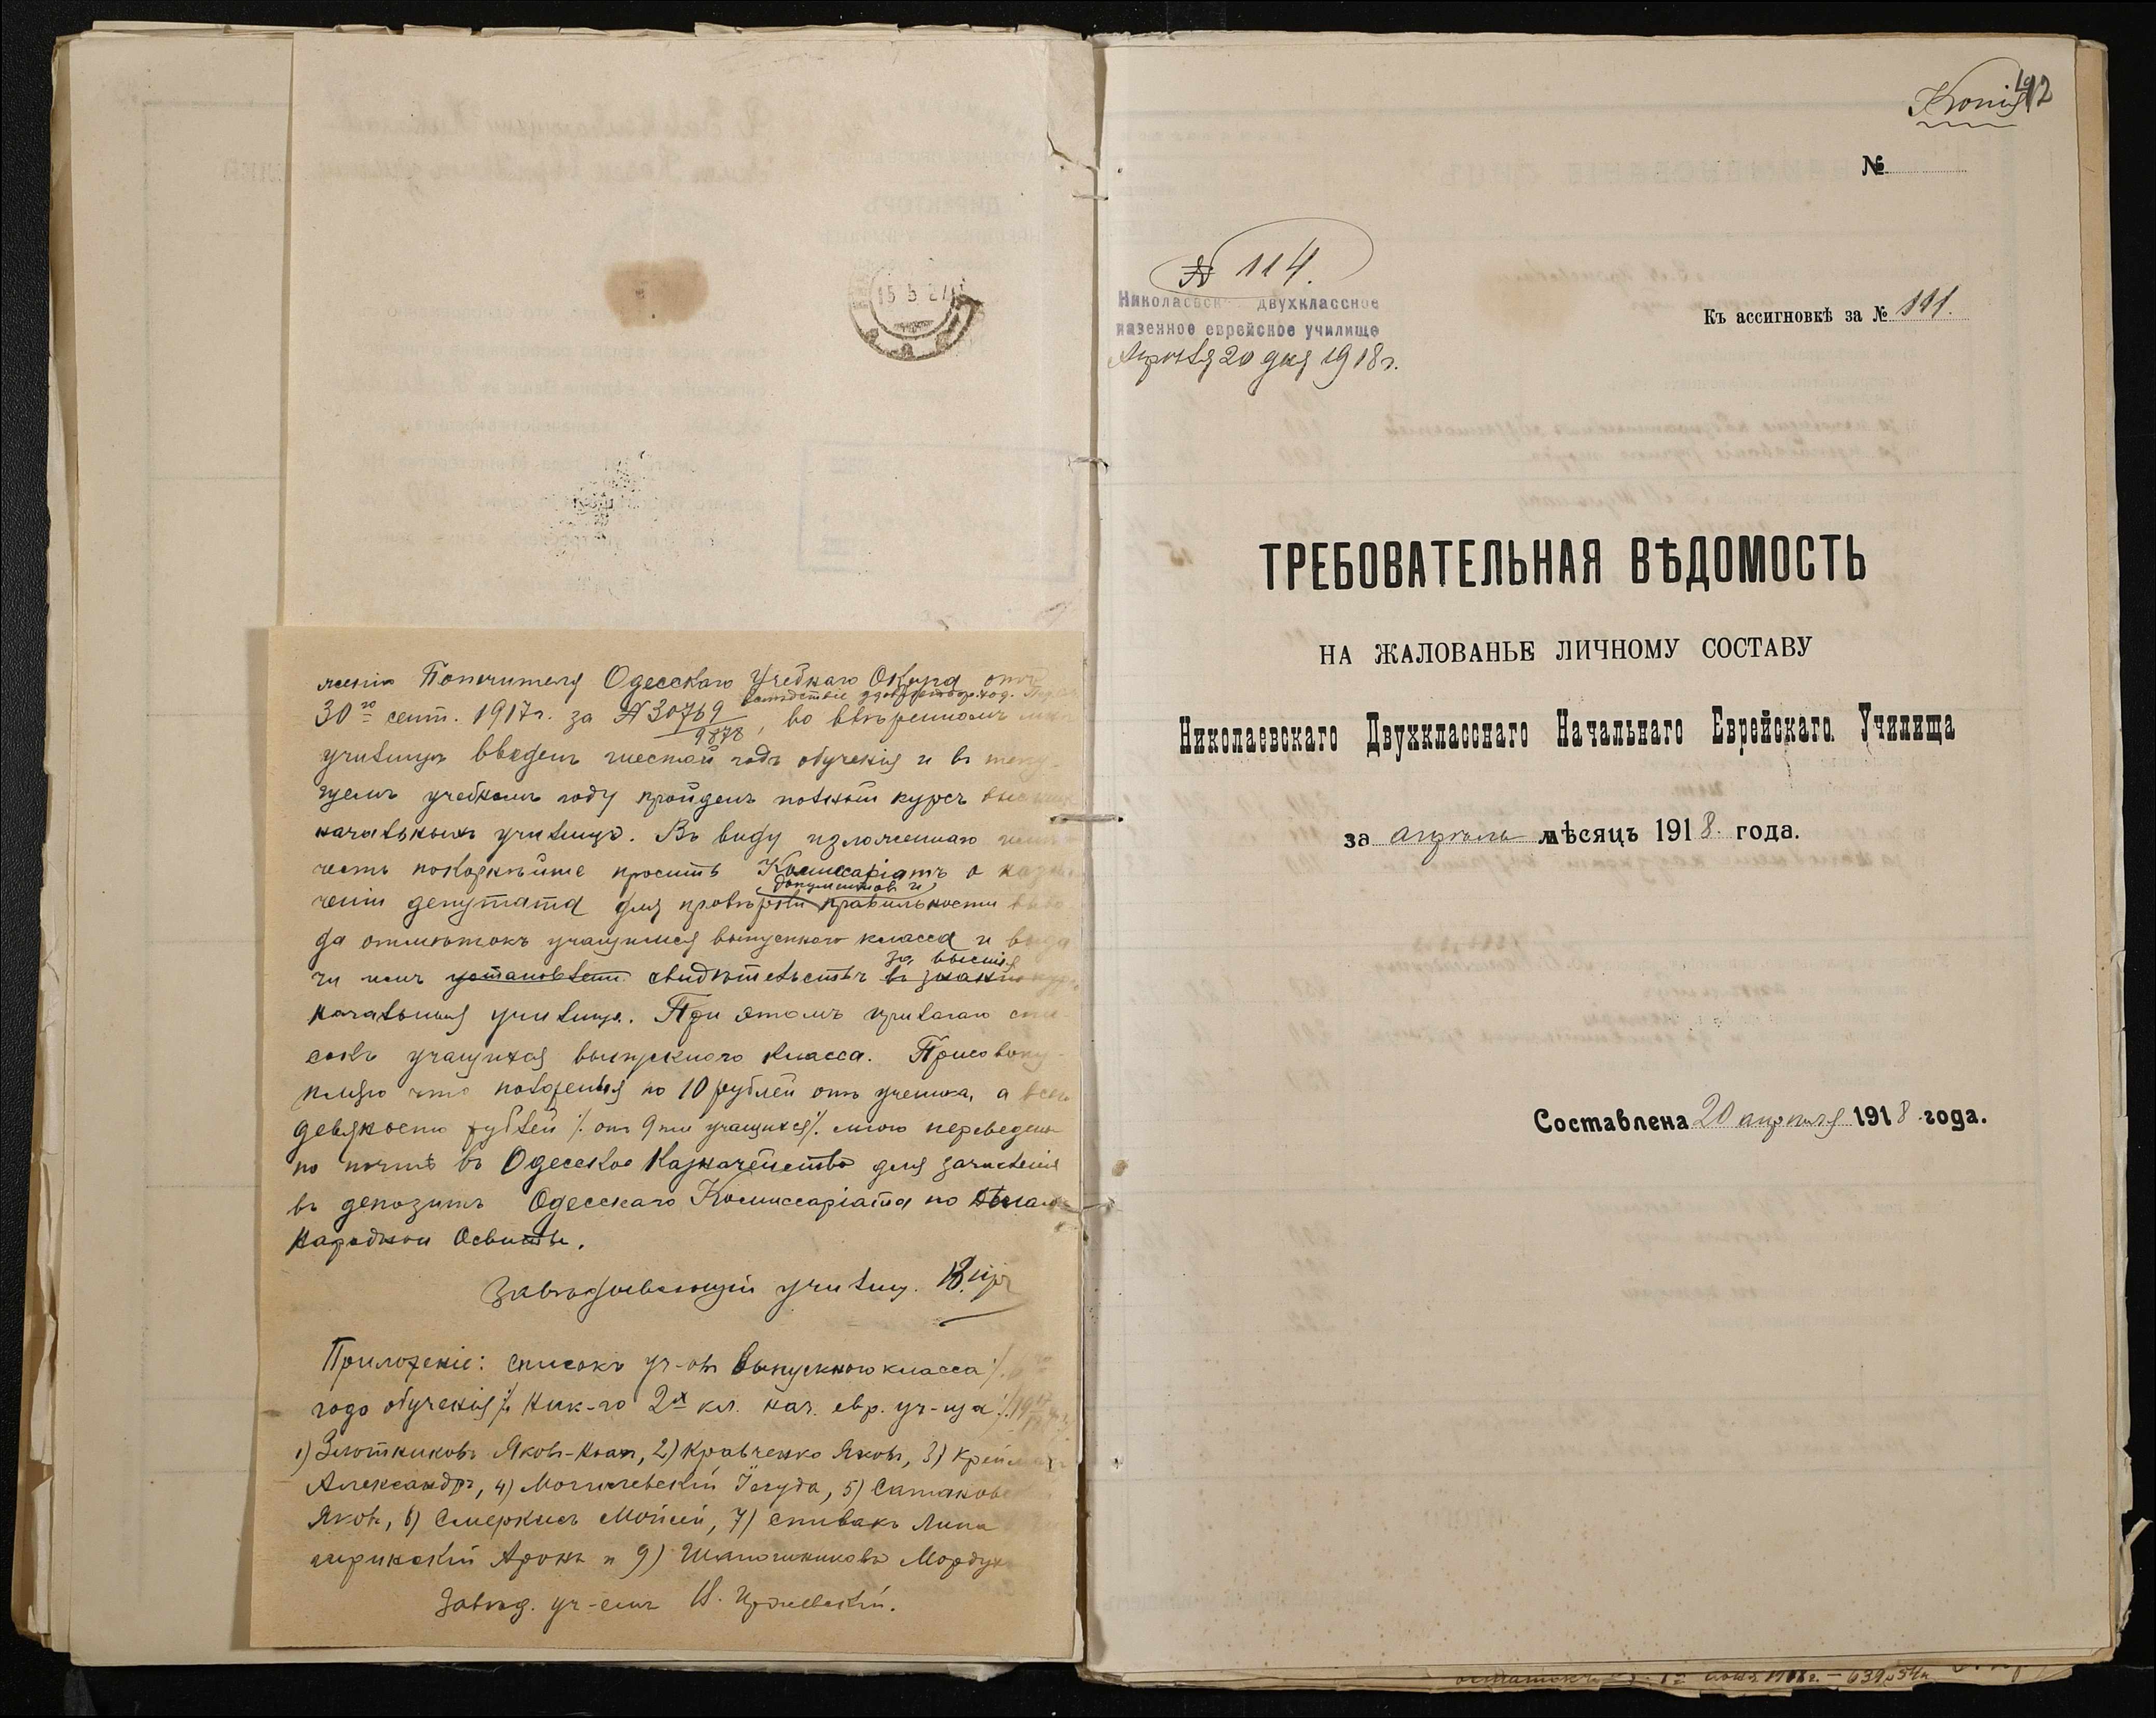 15 5
женія Попечителя Одесскаго Учебнаго Округа отъ
вслѣдствіе
30го сент. 1917г. за № 30769, во ввѣренномъ мнѣ
9878
училищѣ введенъ шестой годъ обученія и въ теку-
щемъ учебномъ году пройденъ полный курсъ высших
начальныхъ училищъ. Въ виду изложеннаго имѣю
честь покорнѣйше просить Комиссаріатъ о назна-
документовъ и
ченіи депутата для провѣрки правильности выво-
да отмѣтокъ учащимся выпускного класса и выда-
за высшія
чи имъ установлен. свидѣтельствъ въ знаніи
начальныя училища. При этомъ прилагаю спи-
сокъ учащихся выпускного класса. Присовоку-
пляю что
по 10 рублей отъ ученика, а всего
девяносто рублей /. отъ 9ти учащихся /. мною переведены
по почтѣ въ Одесское Казначейство для зачисленія
въ депозитъ Одесскаго Комиссаріата по дѣламъ
Народной Освиты.
Завѣдывающій училищ.
Приложеніе: списокъ уч-овъ выпускного класса /.
года обученія /. Ник-го 2х кл. нач. евр. уч-ща
1) Злотниковъ Яковъ-, 2) Кравченко Яковъ, 3)
Александръ, 4) Могилевскій Іегуда, 5)
Яковъ, 6) Смеркисъ Мойсей, 7) Спивакъ Липа
Аронъ и 9) Шапошниковъ Мордух
Завѣд. уч-емъ
Копія
192
№
№ 114.
Николаевск двухклассное
казенное еврейское училище
Апрѣля 20 дня 1918г.
Къ ассигновкѣ за № 111.
ТРЕБОВАТЕЛЬНАЯ ВѢДОМОСТЬ
НА ЖАЛОВАНЬЕ ЛИЧНОМУ СОСТАВУ
Николаевскаго Двухкласснаго Начальнаго Еврейскаго Училища
за апрѣль мѣсяцъ 1918 года.
Составлена 20 апрѣля 1918 года.